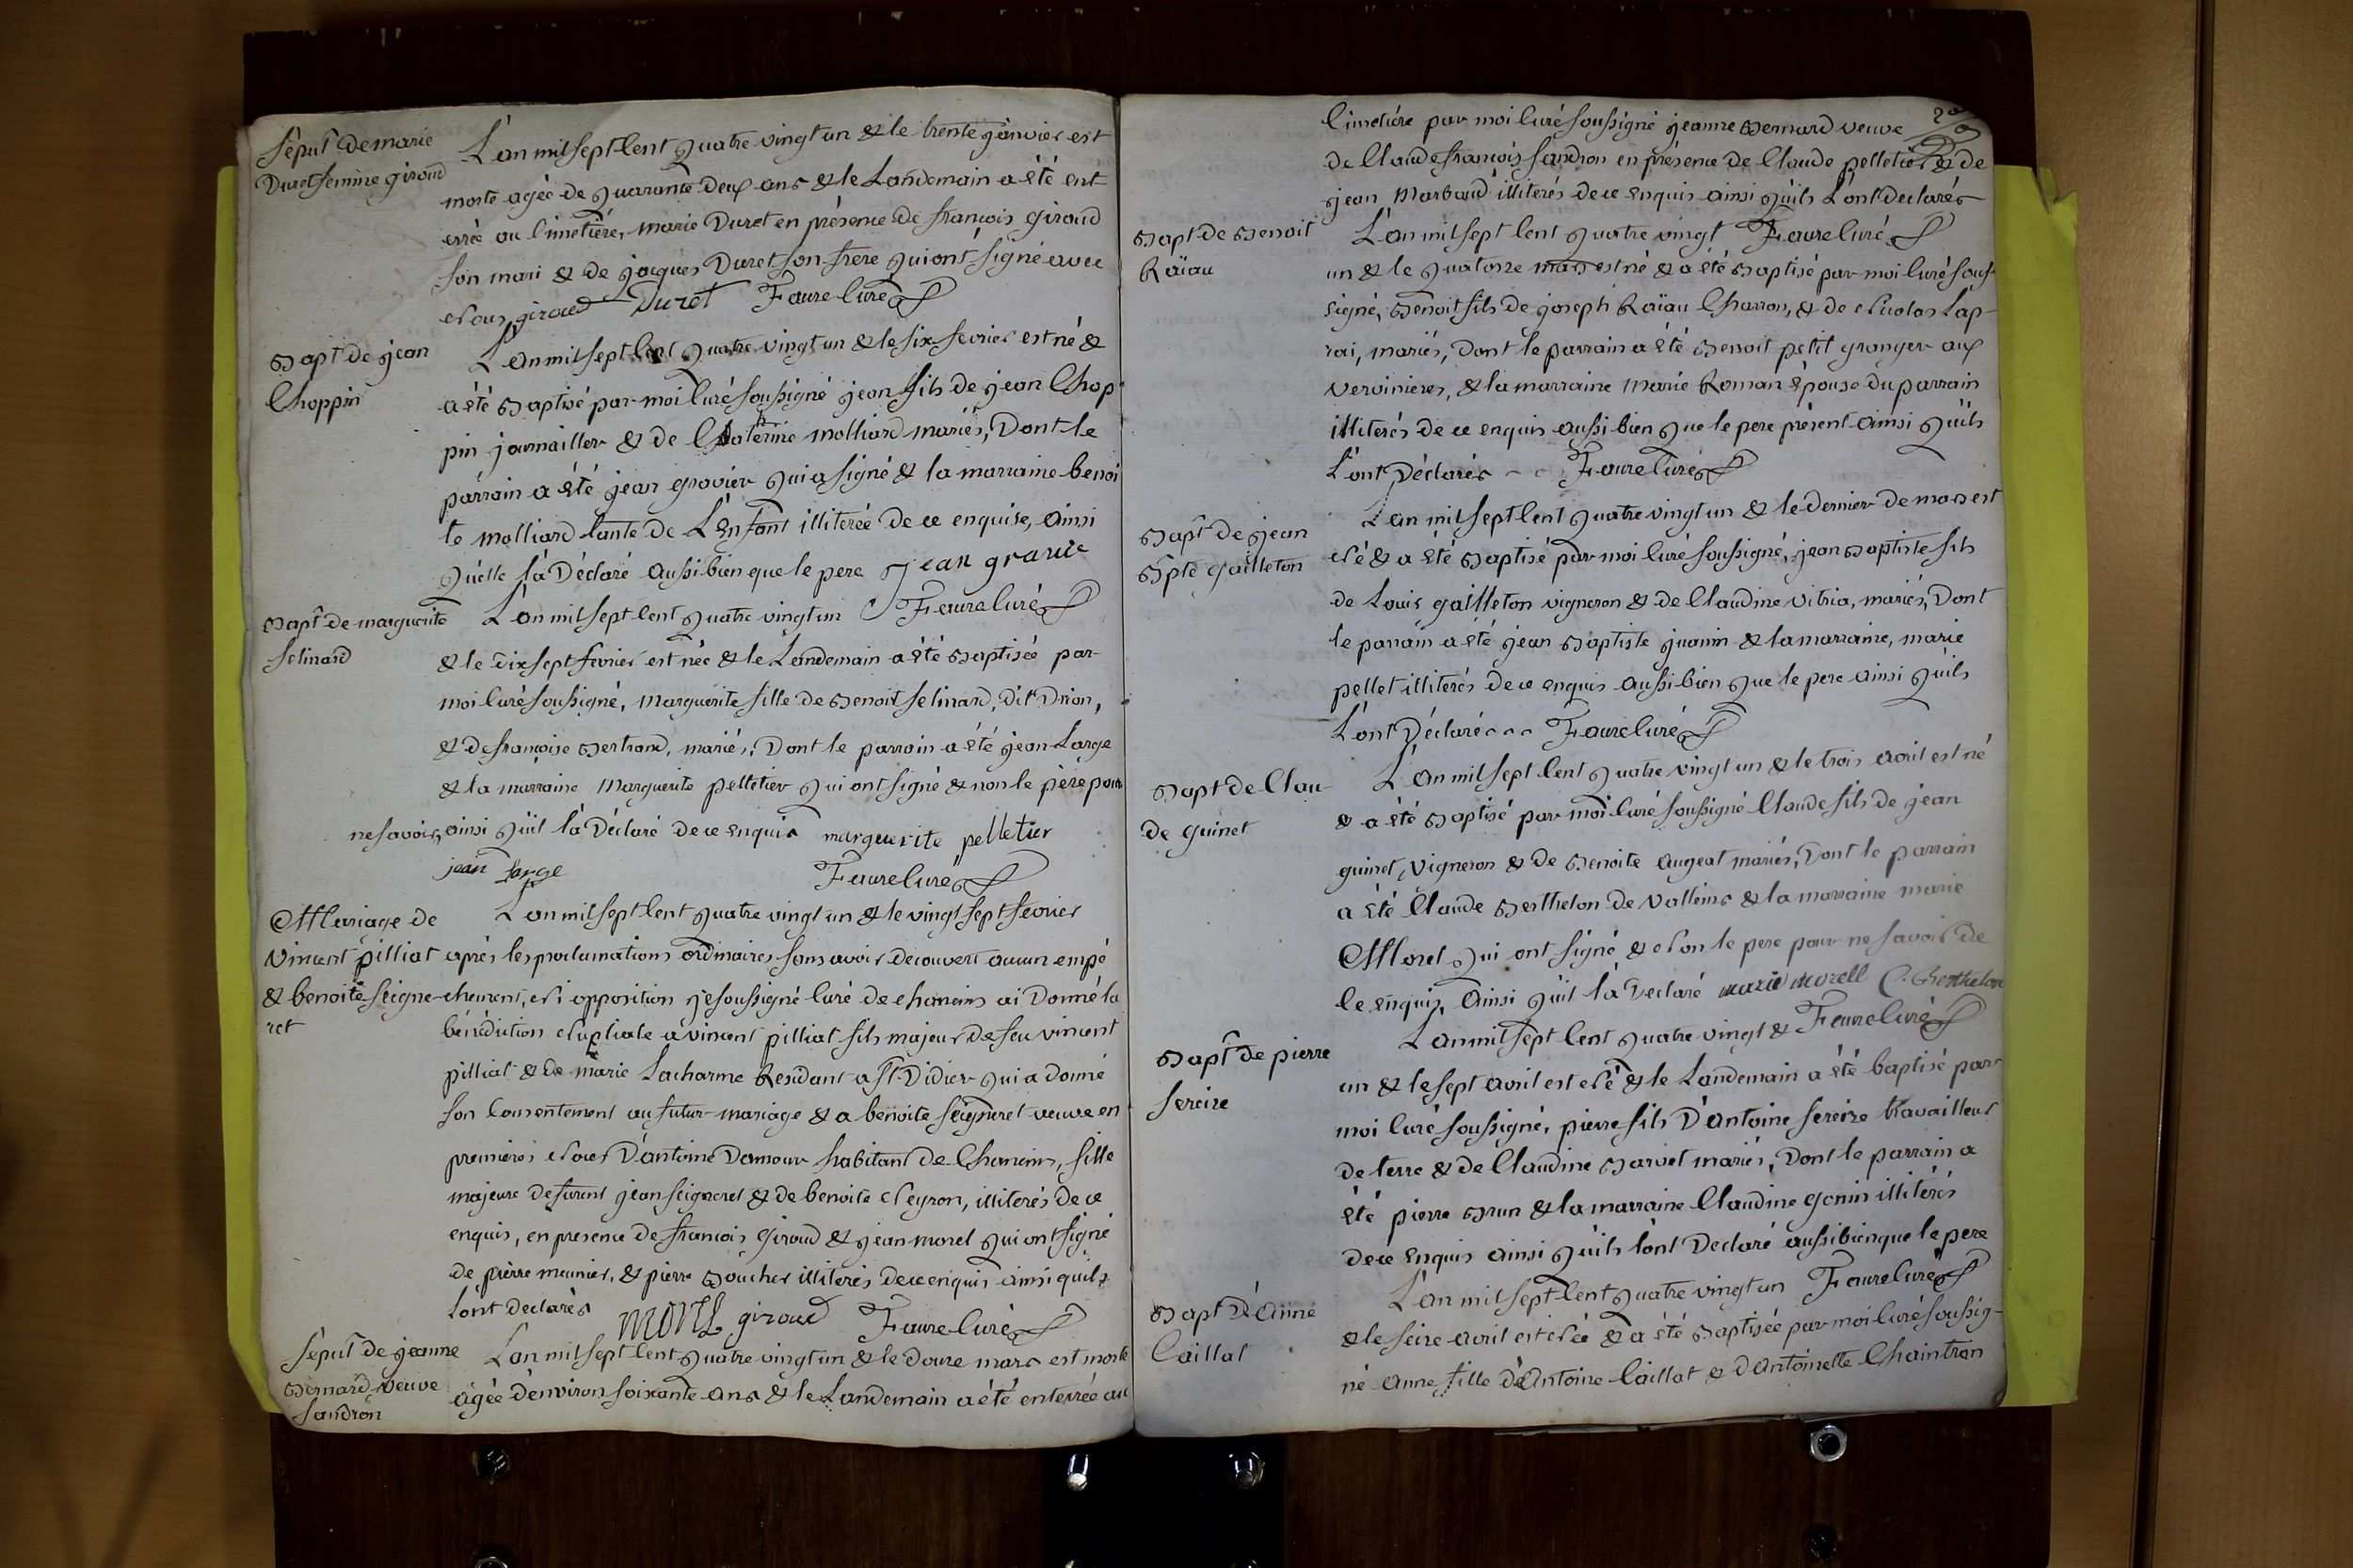 Sépult de marie
Duret femme giroud
L'an mil sept Cent quatre vingt un & le trente janvier est
morte agée de quarante deux ans & le Landemain a été ent
errée au Cimetière, marie Duret en présence de françois giroud
son mari & de jacques Duret son frere qui ont signé avec
Nous giroud Duret Faure Curé
Bapt de jean
Choppin
L'an mil sept Cent quatre vingt un & le six fevrier est né &
a été Baptisé par moi Curé soussigné jean fils de jean Chop
pin journallier & de Catherine molliard mariés, Dont le
parrain a été jean gravier qui a signé & la marraine benoi
te molliard tante de L'Enfant illiterée de ce enquise, ainsi
qu'elle l'a Déclaré aussi bien que le pere jean gravie
Bapt de marguerite
selinard
L'an mil sept Cent quatre vingt un Faure Curé
& le dix sept fevrier est née & le Landemain a été Baptisée par
moi Curé soussigné, Marguerite fille de Benoit selinard, dit Drion,
& de françoise Bertrand, mariés, Dont le parrain a été jean Large
& la marraine Marguerite pelletier qui ont signé & non le père pour
ne savoir, ainsi qu'il l'a Déclaré de ce enquis marguerite pelletier
jean Large Faure Curé
Mariage de
vincent pilliat
& benoite seigne
ret
L'an mil sept Cent quatre vingt un & le vingt sept fevrier
après les proclamations ordinaires sans avoir decouvert aucun empé
chement, Ni opposition je soussigné Curé de chaneins ai Donné la
bénédiction Nuptiale a vincent pilliat fils majeur de feu vincent
pilliat & de marie Lacharme Residant a St Didier qui a donné
son Consentement au futur mariage & a benoite seigneret veuve en
premieres Noces D'antoine Damour habitant de Chaneins, fille
majeure de furent jean seigneret & de benoite Neyron, illiterés de ce
enquis, en presence de francois giroud & jean morel qui ont signé
de pierre meunier, & pierre Boucher illiterés de ce enquis ainsi quils
l'ont declarés giroud Faure Curé
Sépult de jeanne
Bernard veuve
sandron
L'an mil sept Cent quatre vingt un & le douze mars est morte
agée d'environ soixante ans & le Landemain a été enterrée au
Cimetière par moi Curé soussigné jeanne Bernard veuve
de Claude françois sandron en présence de Claude pelletier & de
jean Marbaud illiterés de ce enquis ainsi qu'ils L'ont declarés
Bapt de Benoit
Raïau
L'an mil sept Cent quatre vingt Faure Curé
un & le quatorze mars est né & a été Baptisé par moi Curé sous
signé, Benoit fils de joseph Raïau Charron, & de Nicolas Lap-
rai, mariés, Dont le parrain a été Benoit petit granger aux
verviniéres, & la marraine Marie Roman Epouse du parrain
illiterés de ce enquis aussi bien que le pere présent ainsi qu'ils
L'ont Déclarés Faure Curé
Bapt de jean
Bpte gailleton
L'an mil sept Cent quatre vingt un & le dernier de mars est
Né & a été Baptisé par moi Curé soussigné, jean Baptiste fils
de Louis gailleton vigneron & de Claudine vitria, mariés, Dont
le parrain a été jean Baptiste guanin & la marraine, marie
pellet illiterés de ce enquis aussi bien que le pere ainsi qu'ils
L'ont Déclaré Faure Curé
Bapt de Clau
de guinet
L'an mil sept Cent quatre vingt un & le trois avril est né
& a été Baptisé par moi Curé soussigné Claude fils de jean
guinet, vigneron & de Benoite augeat mariés, Dont le parrain
a été Claude Berthelon de valleins & la marraine marie
Morel qui ont signé & Non le pere pour ne savoir de
ce enquis, Ainsi qu'il l'a Declaré marie morell C. Berthelon
Bapt de pierre
sereize
L'an mil sept Cent quatre vingt & Faure Curé
un & le sept avril est Né & le Landemain a été baptisé par
moi Curé soussigné, pierre fils D'antoine sereize travailleur
de terre & de Claudine Barvet mariés, Dont le parrain a
été pierre Brun & la marraine Claudine gonin illiterés
de ce enquis ainsi qu'ils l'ont Declaré aussi bien que le pere
Bapt D'Anne
Caillat
L'an mil sept Cent quatre vingt un Faure Curé
& le seize avril est Née & a été Baptisée par moi Curé soussig-
né anne fille d'Antoine Caillat & d'Antoinette Chaintron